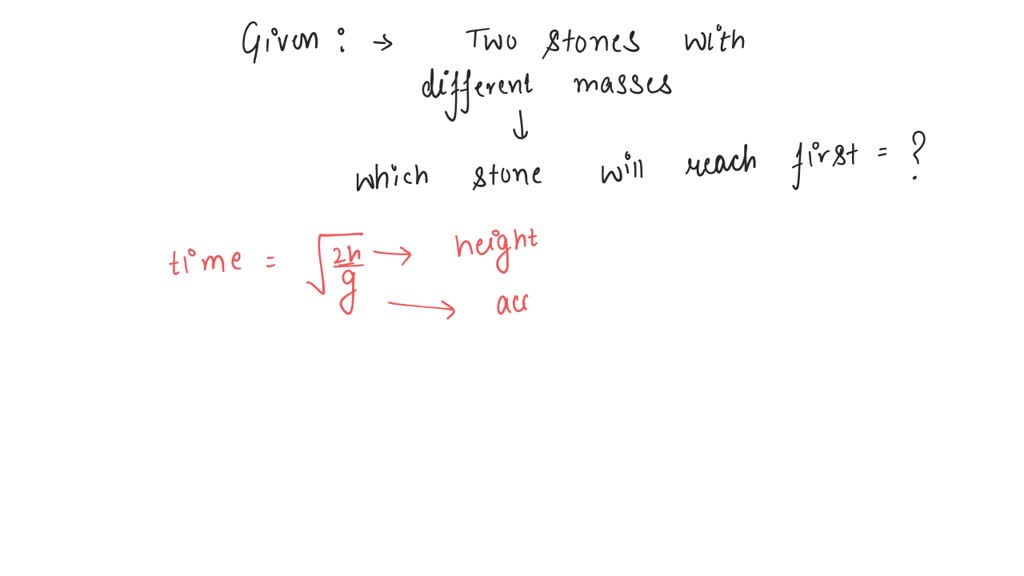 Given : → Two stones with
different masses
↓
which stone will reach first = ?
time = √(2h/g) → height
→ acc